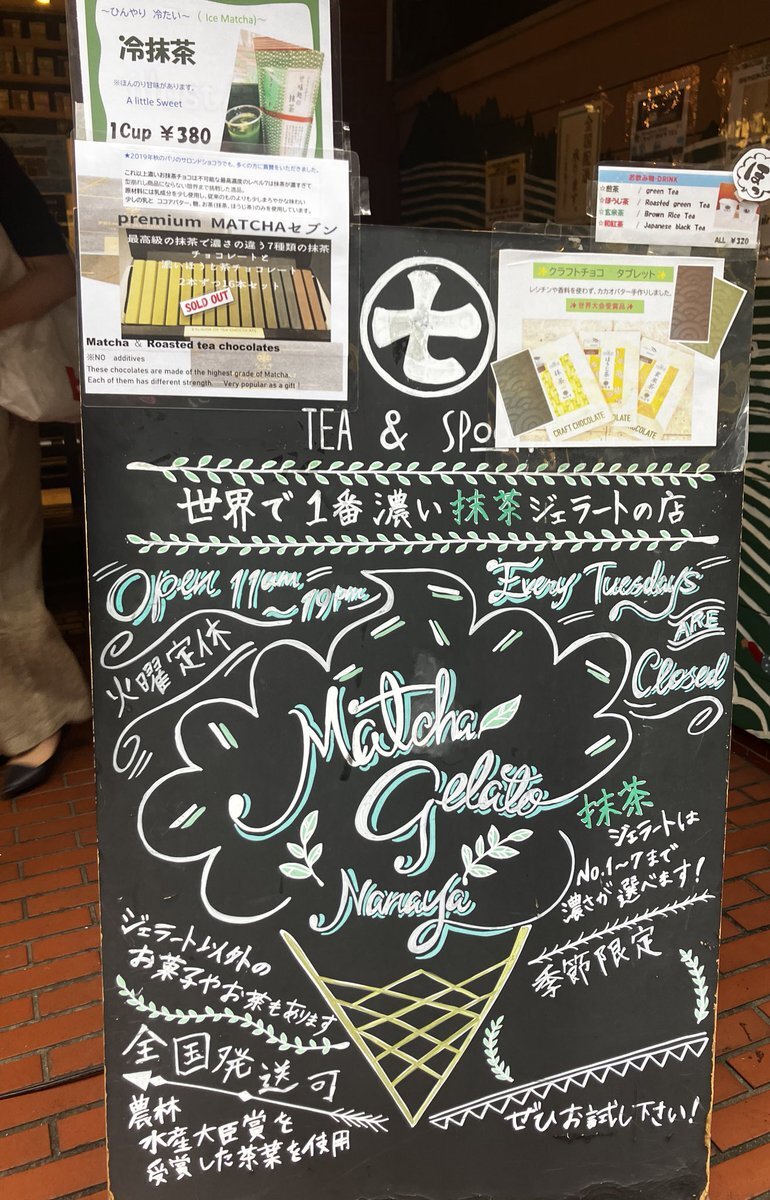 ～ひんやり 冷たい～ ( Ice Matcha)～
冷抹茶
※ほんのり甘味があります。
A little Sweet
1Cup ¥380
★2019年秋のパリのサロンドショコラでも、多くの方に賞賛をいただきました。
これ以上濃いお抹茶チョコは不可能な最高濃度のレベル7は抹茶が濃すぎて
少しの乳と ココアバター、糖、お茶(抹茶、ほうじ茶)のみを使用しています。
premium MATCHAセブン
最高級の抹茶で濃さの違う7種類の抹茶
チョコレートと
濃いほうじ茶チョコレート
2本ずつ16本セット
SOLD OUT
Matcha & Roasted tea chocolates
※NO additives
These chocolates are made of the highest grade of Matcha.
Each of them has different strength. Very popular as a gift!
お飲み物・DRINK
☆煎茶 / green Tea
☆ほうじ茶 / Roasted green Tea
☆玄米茶 / Brown Rice Tea
☆和紅茶 / Japanese black Tea
ALL ¥320
ほう
クラフトチョコ タブレット
レシチンや香料を使わず、カカオバター手作りしました。
世界大会受賞品
抹茶
ほうじ茶
玄米茶
CRAFT CHOCOLATE
CHOCOLATE
CRAFT CHOCOLATE
七
TEA & SPO
世界で1番濃い抹茶ジェラートの店
Open 11am
～19pm
火曜定休
Every Tuesdays
ARE
Closed
Matcha
Gelato
Nanaya
抹茶
ジェラートは
No.1～7まで
濃さが選べます!
季節限定
ジェラート以外の
お菓子やお茶もあります
全国発送可
農林
水産大臣賞を
受賞した茶葉を使用
ぜひお試し下さい!